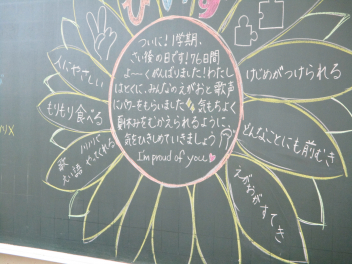 ついに!1学期、
さい後の日です!76日間
よ〜くがんばりました!わたし
はとくに、みんなのえがおと歌声
にパワーをもらいました 気もちよく
夏休みをむかえられるように、
気をひきしめていきましょう
I'm proud of you
人にやさしい
もりもり食べる
ノリノリ
やってくれる
歌
えい語
けじめがつけられる
どんなことにも前むき
えがおがすてき